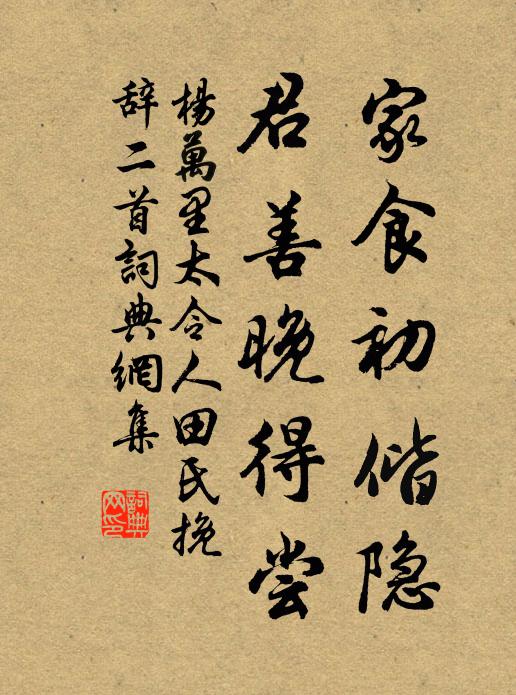 家食初偕隐
君善晚得尝
杨萬里太令人田氏挽
辞二首詞典網集
詞典網印